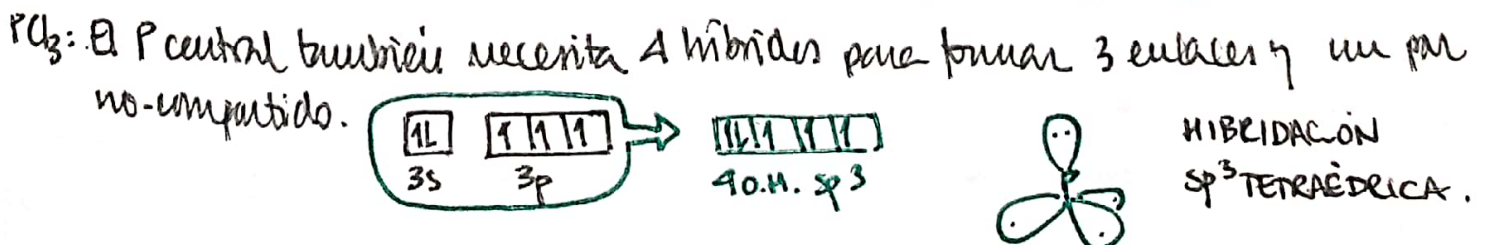 PCl₃: El P central también necesita 4 híbridos para formar 3 enlaces y un par
no-compartido.
1L 1 1 1 1L 1 1 1 HIBRIDACIÓN
3s 3p 4 O.H. sp³ P SP³ TETRAÉDRICA.